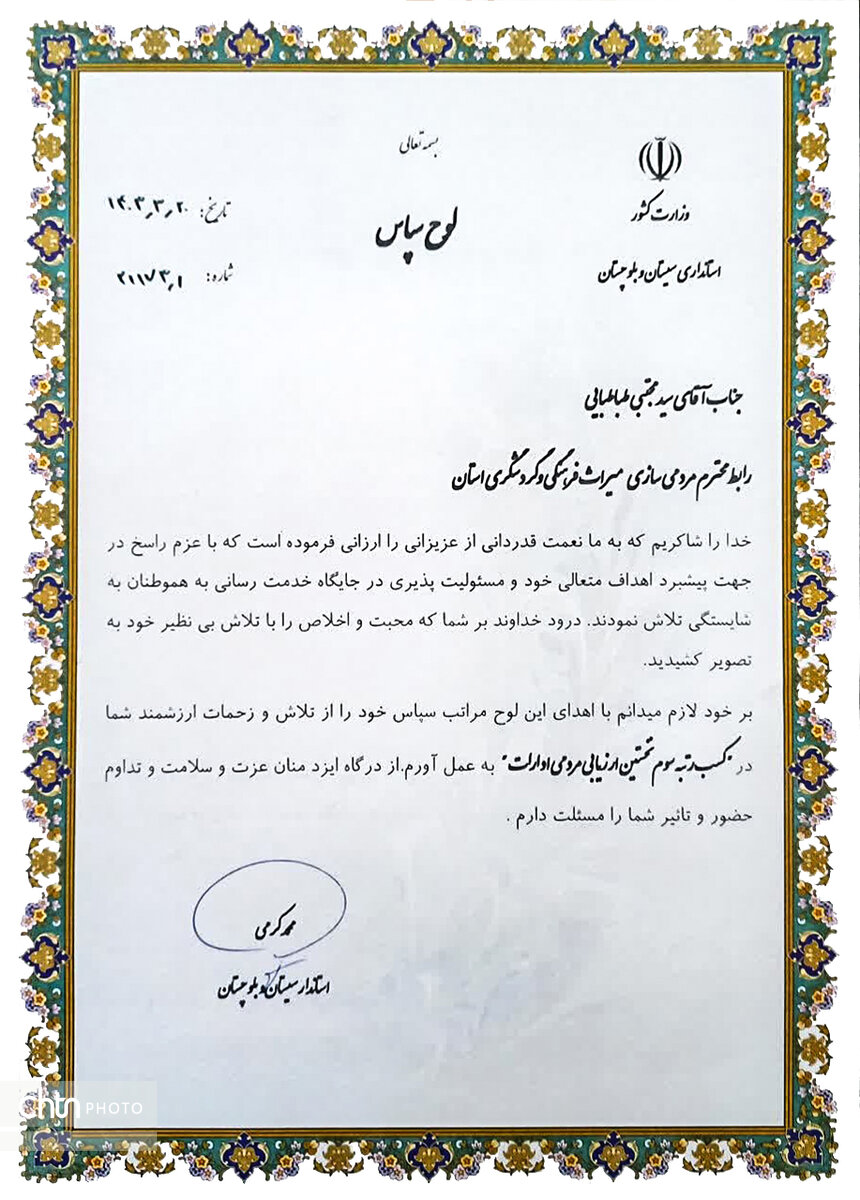 بسمه تعالی
وزارت کشور
استانداری سیستان و بلوچستان
لوح سپاس
تاریخ: ۱۴۰۳٫۳٫۲۰
شماره:
جناب آقای سید مجتبی طباطبایی
رابط محترم مردمی سازی میراث فرهنگی و گردشگری استان
خدا را شاکریم که به ما نعمت قدردانی از عزیزانی را ارزانی فرموده است که با عزم راسخ در
جهت پیشبرد اهداف متعالی خود و مسئولیت پذیری در جایگاه خدمت رسانی به هموطنان به
شایستگی تلاش نمودند. درود خداوند بر شما که محبت و اخلاص را با تلاش بی نظیر خود به
تصویر کشیدید.
بر خود لازم میدانم با اهدای این لوح مراتب سپاس خود را از تلاش و زحمات ارزشمند شما
در "کسب رتبه سوم نخستین ارزیابی مردمی ادارات" به عمل آورم.از درگاه ایزد منان عزت و سلامت و تداوم
حضور و تاثیر شما را مسئلت دارم .
محمد کرمی
استاندار سیستان و بلوچستان
chtn PHOTO